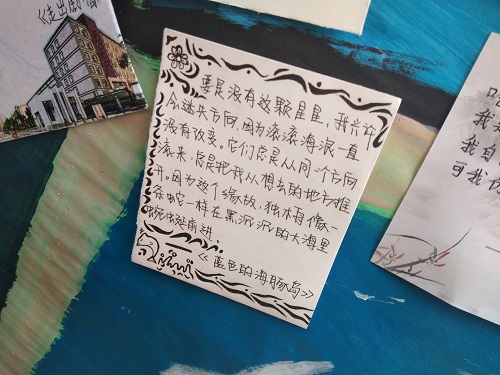 《走出剧情》
要是没有这颗星星，我也许
会迷失方向，因为滚滚海浪一直
没有改变。它们总是从同一个方向
滚来，总是把我从想去的地方推
开。因为这个缘故，独木舟像一
条蛇一样在黑沉沉的大海里
蜿蜒前进。
《蓝色的海豚岛》
我
我自
可我